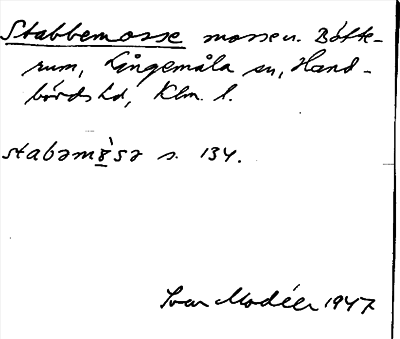 Stabbemosse mossen. Bötte-
rum, Långemåla sn, Hand-
börds hd, Klm. l.
stabəmʊ̀sə s. 134.
Ivar Modéer 1947